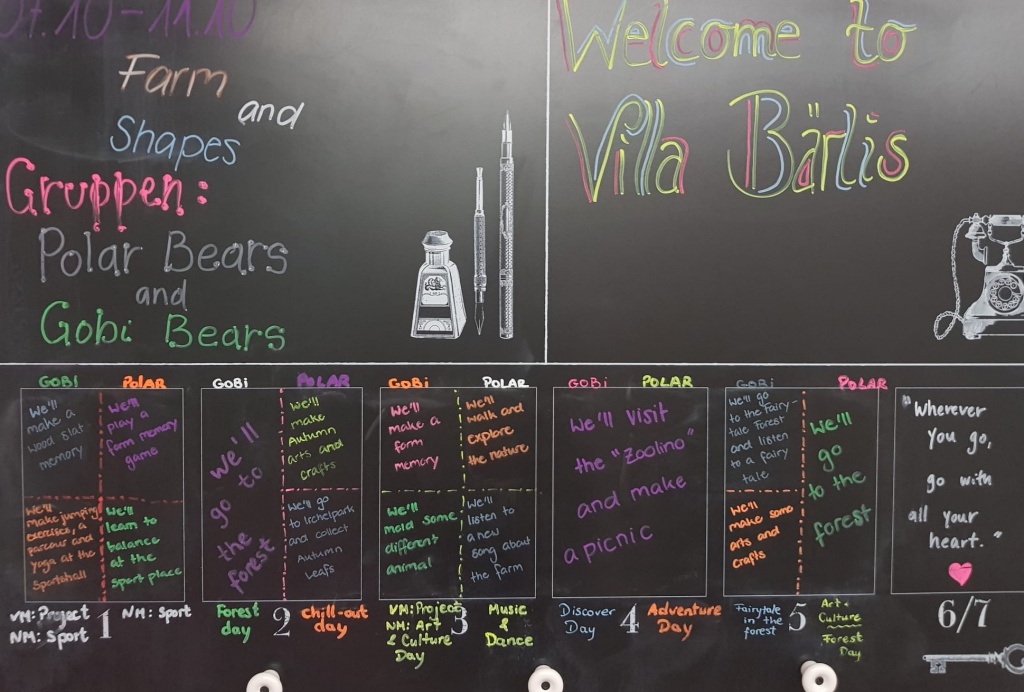 07.10-11.10
Farm
and
Shapes
Gruppen:
Polar Bears
and
Gobi Bears
Welcome to
Villa Bärlis
GOBI
POLAR
We'll
make a
wood slat
memory
We'll
play a
farm memory
game
We'll
make jumping
exercises, a
parcous and
yoga at the
Sportshall
We'll
learn to
balance
at the
sport place
VM: Project
NM: Sport
1
NM: Sport
GOBI
POLAR
We'll
go to
the
forest
We'll
make
Autumn
arts and
crafts
We'll go
to Lichelpark
and collect
Autumn
Leafs
Forest
day
2
Chill-out
day
GOBI
POLAR
We'll
make a
farm
memory
We'll
walk and
explore
the nature
We'll
mold some
different
animal
We'll
listen to
a new
song about
the farm
VM: Project
NM: Art
& Culture
Day
3
Music
&
Dance
GOBI
POLAR
We'll visit
the "Zoolino"
and make
a picnic
Discover
Day
4
Adventure
Day
GOBI
POLAR
We'll go
to the fairy-
tale Forest
and listen
to a fairy
tale
We'll
make some
arts and
crafts
We'll
go
to the
forest
Fairytale
in the
forest
5
Art &
Culture
Forest
Day
"Wherever
you go,
go with
all your
heart."
6/7